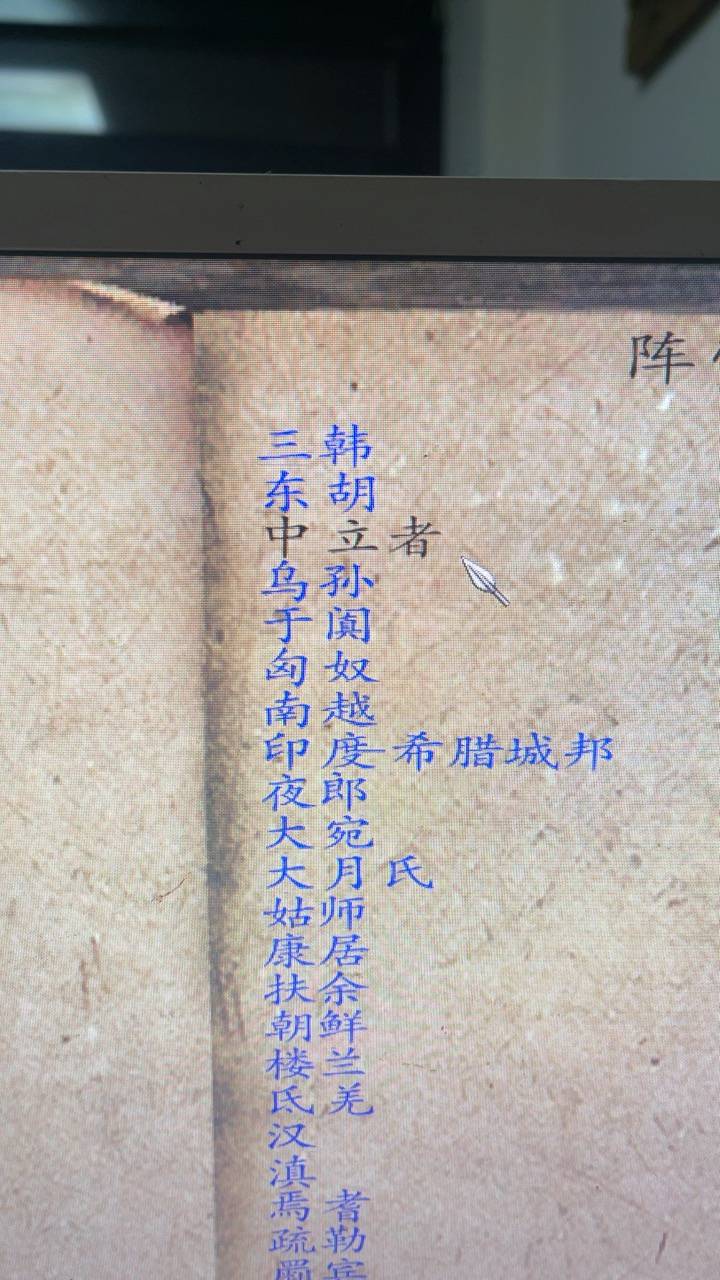 阵
三韩
东胡
中立者
乌孙
于阗
匈奴
南越
印度-希腊城邦
夜郎
大宛
大月氏
姑师
康居
扶余
朝鲜
楼兰
氐羌
汉
滇
焉耆
疏勒
罽宾